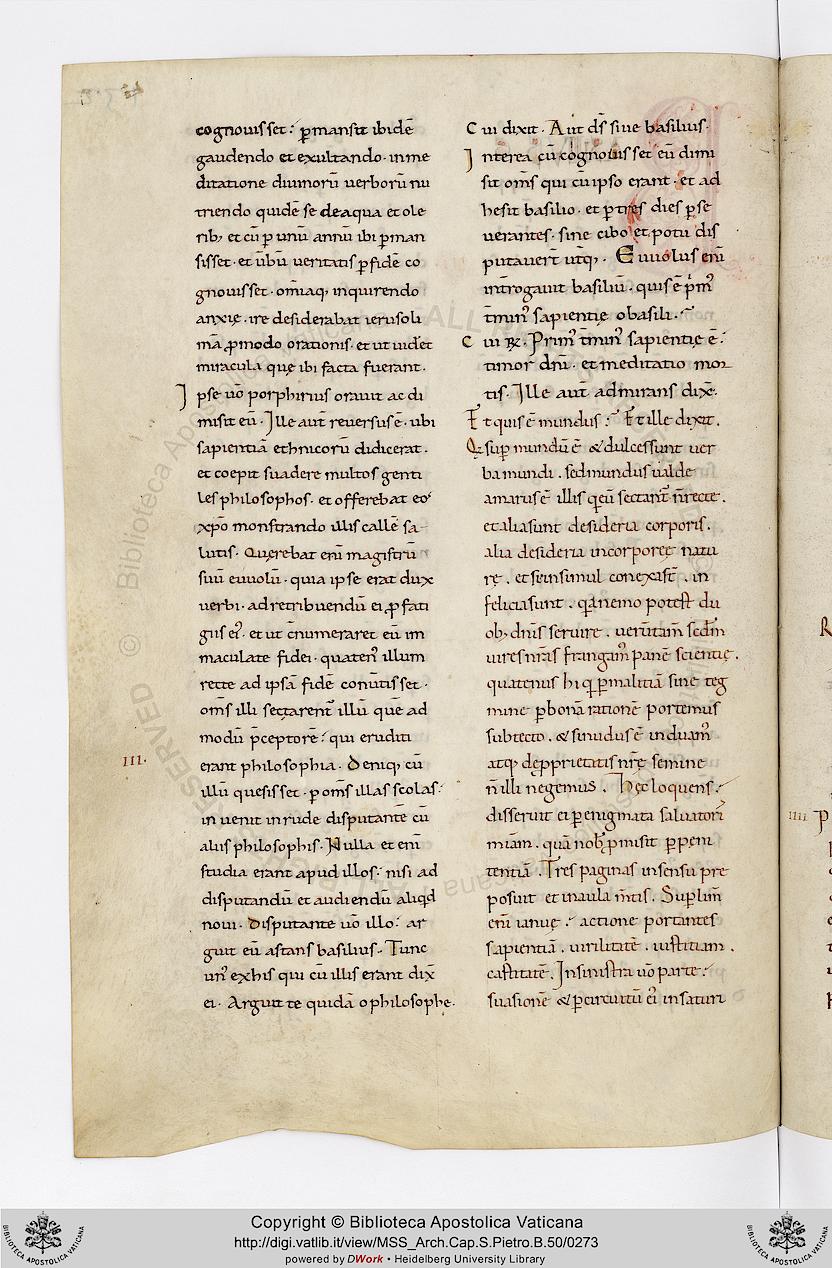 cognouisset ⁏ p̄mansit ibidē
gaudendo et exultando · in me
ditatione diuinorū uerborū nu
triendo quidē se de aqua et ole
rib; et cū p̄ unū annū ibi p̄man
sisset · et ūbū ueritatis p̄fidē co
gnouisset · om̄iaq; inquirendo
anxię · ire desiderabat ierusoli
mā p̄modo orationis · et ut uid&et
miracula quę ibi facta fuerant ·
Ipse uō porphirius orauit ac di
misit eū · Ille aut̄ reuersus ē · ubi
sapientiā ethnicorū didicerat ·
et coepit suadere multos genti
les philosophos · et offerebat eo᾽
xp̄o monstrando illis callē sa-
lutis · Querebat eni magistrū
suū euuolū · quia ipse erat dux
uerbi · ad retribuendū ei p̄ fati
gus ei᾽ · et ut c̄numeraret eū im
maculate fidei · quaten᾽ illum
recte ad ipsā fidē conūtisset ·
om̄s illi sectarent᾽ illū quē ad
modū p̄ceptorē ⁏ qui eruditi
erant philosophia · Deniq; cū
III·
illū quesisset · p̄ om̄s illas scolas ⁏
in uenit in rude disputante cū
aliis philosophis · Nulla et eni
studia erant apud illos ⁏ nisi ad
disputandū et audiendū aliqd
noui · Disputante uō illo ⁏ ar
guit eū astans basilius · Tunc
un᾽ ex his qui cū illis erant dix̄
ei · Arguit te quidā o philosophe ·
Cui dixit · Aut d̄s siue basilius ·
Interea cū cognouisset eū dimi
sit om̄s qui cū ipso erant · et ad
hesit basilio · et p̄ tres dies p̄se
uerantes · sine cibo et potu dis
putauer̄t ut̄q; · Euuolus eni
int̄rogauit basiliū · quis ē p̄m᾽
t̄min᾽ sapientię o basili ·
Cui ℞ · Prim᾽ t̄min᾽ sapientię ē ⁏
timor dn̄i · et meditatio mor
tis · Ille aut̄ admirans dix̄ ·
Et quis ē mundus ⁏ Et ille dixit ·
Q sup̄ mundū ē & dulces sunt uer
ba mundi · sed mundus ualde
amarus ē illis q eū sectant᾽ n̄ recte ·
et alia sunt desideria corporis ·
alia desideria incorporeę natu
rę · et
felicia sunt · qā nemo potest du
ob; dn̄is seruire · uerūtam̄ sedm̄
uires nr̄as frangam᾽ panē scientię ·
quatenus hi q p̄ malitiā sine teg
mine p̄ bonā rationē portemus
sub tecto · & si nudus ē induam᾽
atq; de p̄prietatis nr̄ę semine
n̄ illi negemus · Hęc loquens ⁏
disseruit ei p̄ enigmata saluatori
miam · quā nob; p̄misit p̄ peni
tentiā · Tres paginas in sensu pre
posuit et in aula m̄tis · Sup̄ lim̄
eni ianuę ⁏ actione portantes
sapientiā · uirilitatē · iustitiam ·
castitatē · In sinistra uō parte ⁏
suasionē & p̄ circuitū ei᾽ insaturi
IIII
Copyright © Biblioteca Apostolica Vaticana
http://digi.vatlib.it/view/MSS_Arch.Cap.S.Pietro.B.50/0273
powered by DWork • Heidelberg University Library
BIBLIOTECA APOSTOLICA VATICANA
BIBLIOTECA APOSTOLICA VATICANA